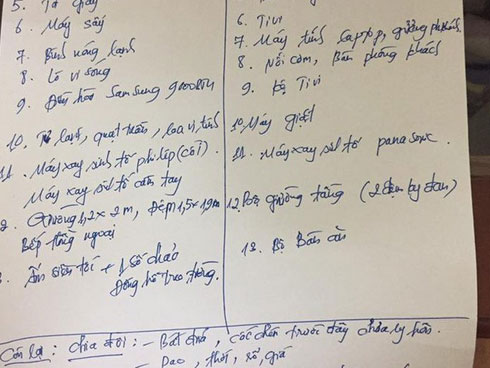 5. Tủ giày
6. Máy sấy
7. Bình nóng lạnh
8. Lò vi sóng
9. Điều hòa Samsung 9000BTU
10. Tủ lạnh, quạt trần, loa vi tính
11. Máy xay sinh tố philip (cốt)
Máy xay sinh tố cầm tay
2. Giường 1,2 x 2m, Đệm 1,5 x 1,9m
Bếp hồng ngoại
Ấm siêu tốc + 1 số chảo
Đồng hồ treo tường.
6. Tivi
7. Máy tính laptop, giường phòng khách
8. Nồi cơm, Bàn phòng khách
9. Kệ Tivi
10. Máy giặt
11. Máy xay sinh tố panasonic.
12. Bộ giường tầng (2 đệm
13. Bộ Bàn ăn
Còn lại : chia đôi : - Bát đũa, cốc chén trước đây chưa ly hôn.
- Dao, thớt, rổ, giá